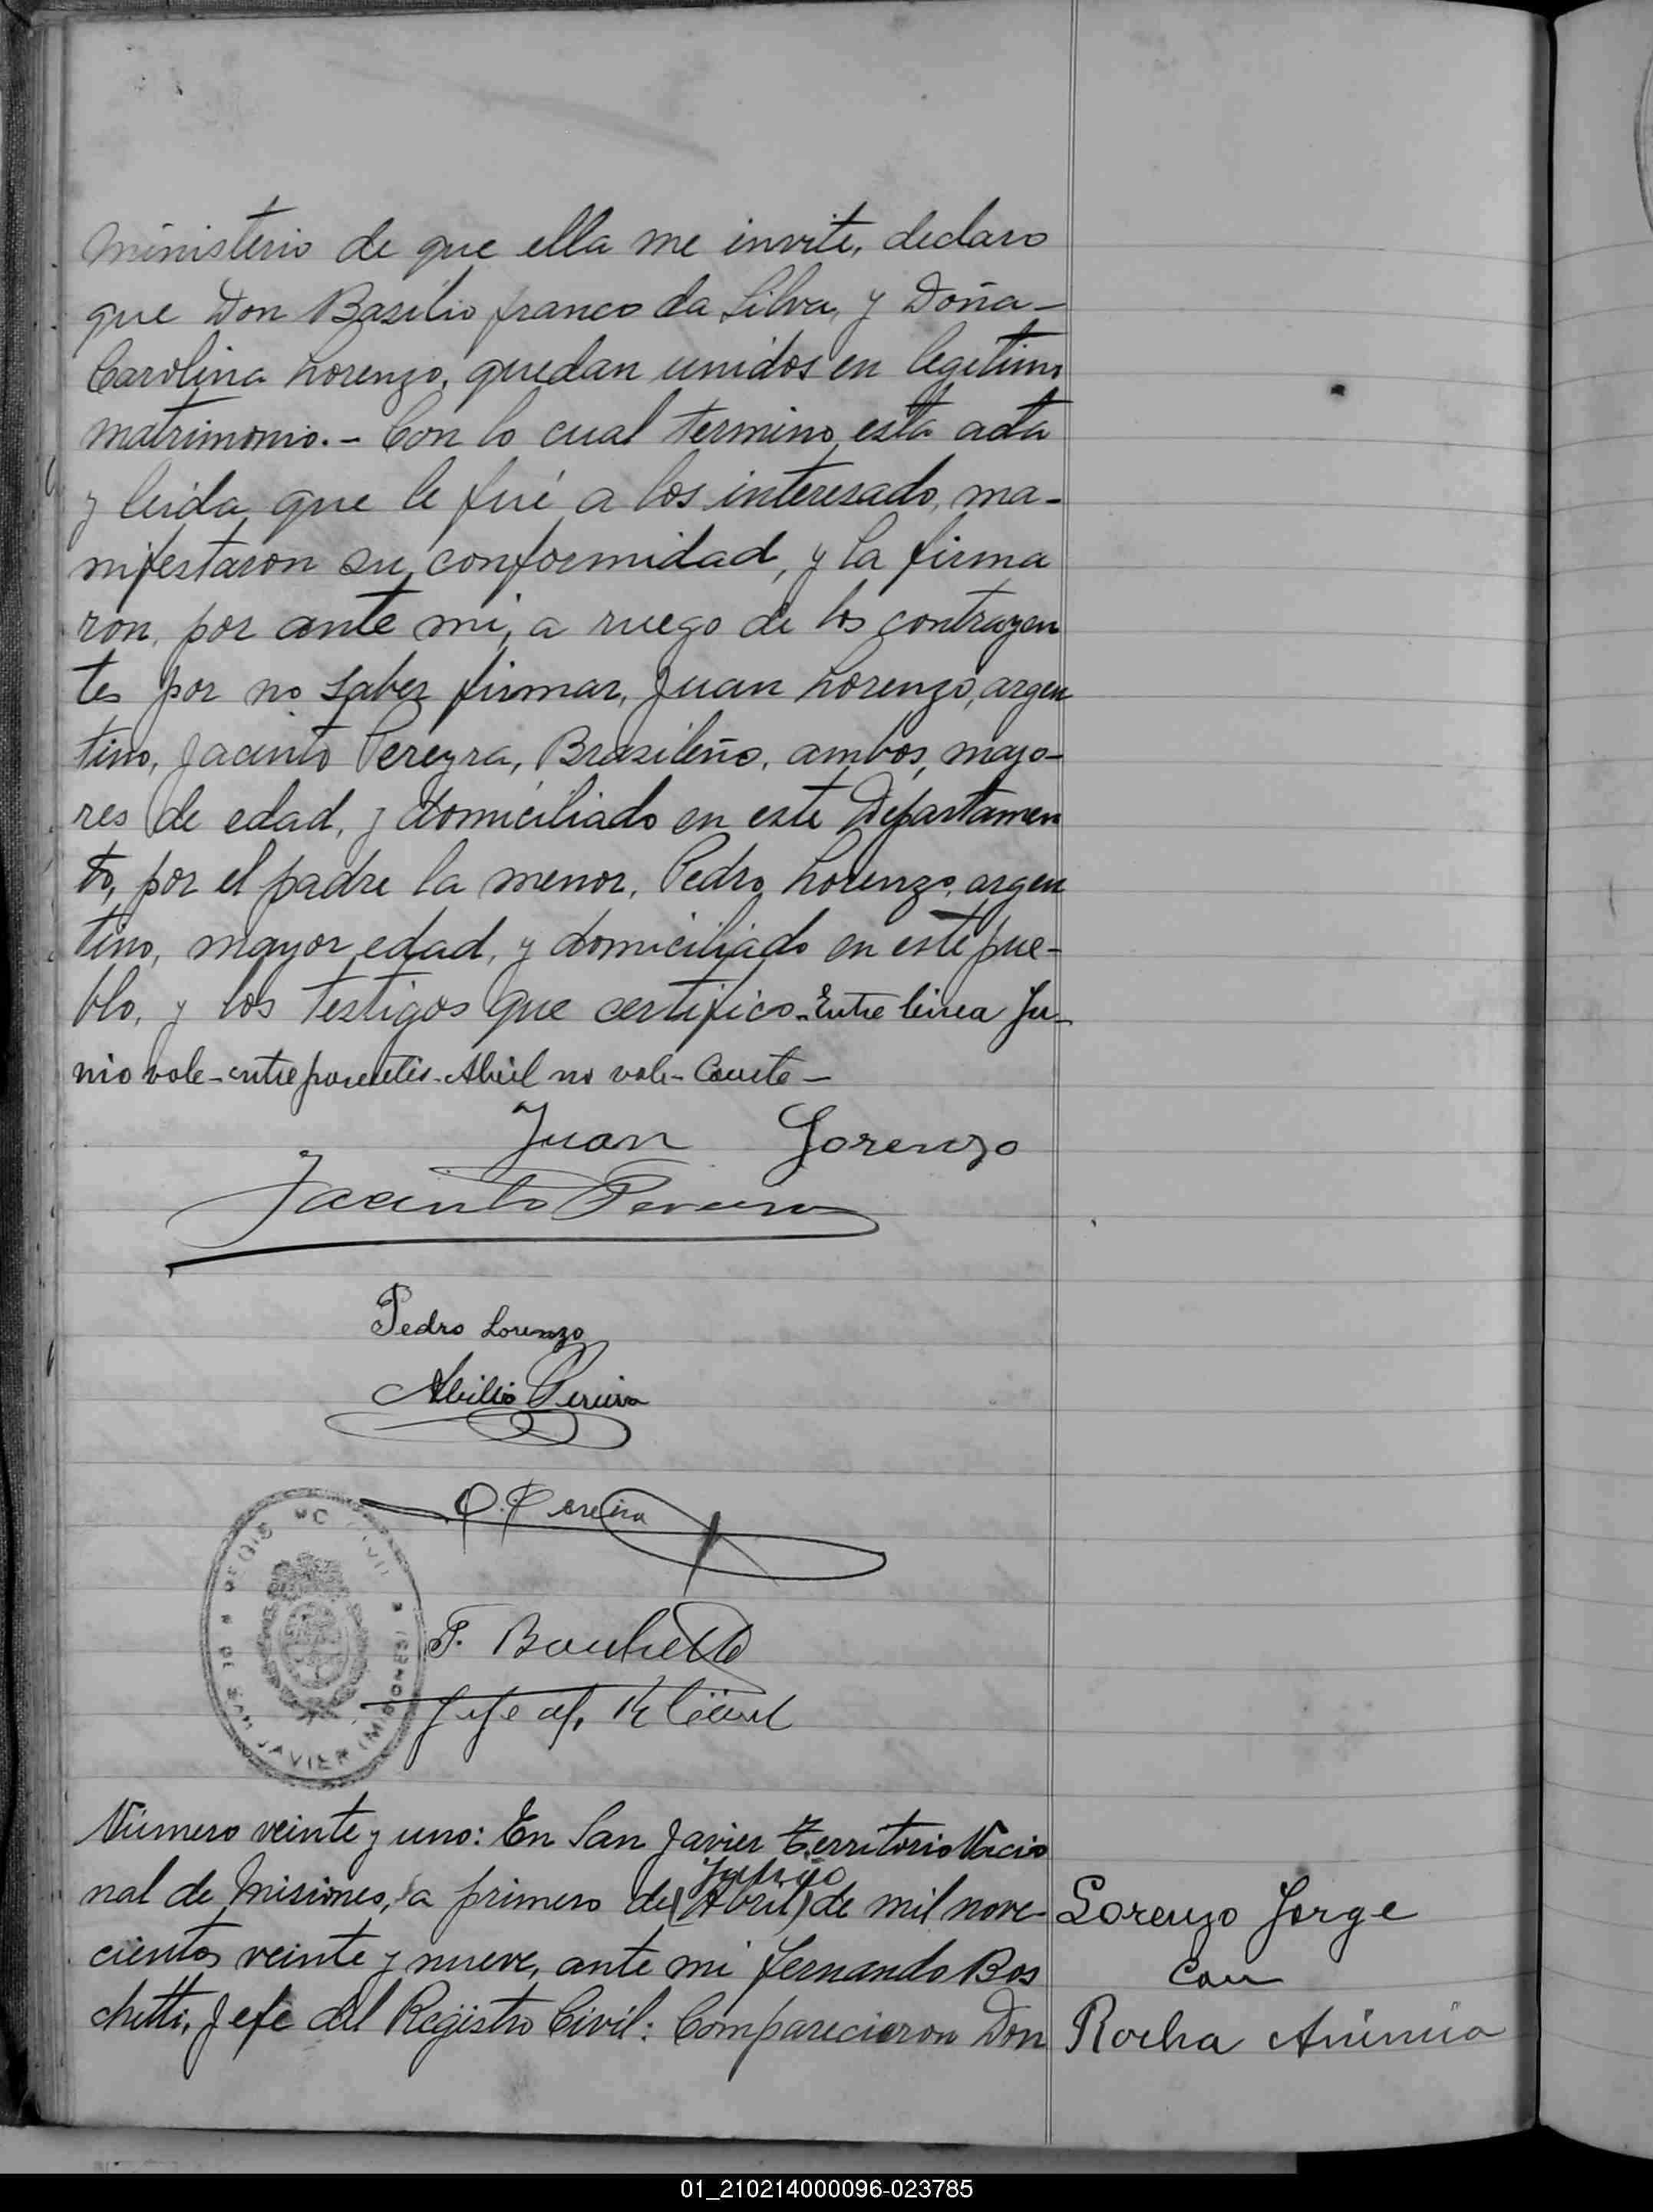 ministerio de que ella me invite, declaro
que Don Basilio franco da Silva, y Doña-
Carolina Lorenzo, quedan unidos en legitimo
matrimonio.- Con lo cual termino, esta acta
y leida, que le fué a los interesado, ma-
nifestaron su conformidad, y la firma
ron, por ante mi, a ruego de los contrayen
tes por no saber firmar, Juan Lorenzo, argen
tino, Jacinto Pereyra, Brasileño, ambos, mayo-
res de edad, y domiciliado en este Departamen
to, por el padre la menor, Pedro Lorenzo, argen
tino, mayor edad, y domiciliado en este pue-
blo, y los testigos que certifico.- Entre linea Ju-
nio vale- entre parentetis- Abril no vale- Conste-
Juan Lorenzo
Jacinto Pereira
Pedro Lorenzo
Abilio Pereira
P. Pereira
REGISTRO CIVIL
DE SAN JAVIER (MISIONES)
F. Boschetti
Jefe del R. Civil
Número veinte y uno: En San Javier Territorio Nacio
nal de Misiones, a primero de (Abril) de mil nove-
cientos veinte y nueve, ante mi fernando Bos
chetti, Jefe del Registro Civil: Comparecieron Don
Lorenzo Jorge
con
Rocha
01_210214000096-023785